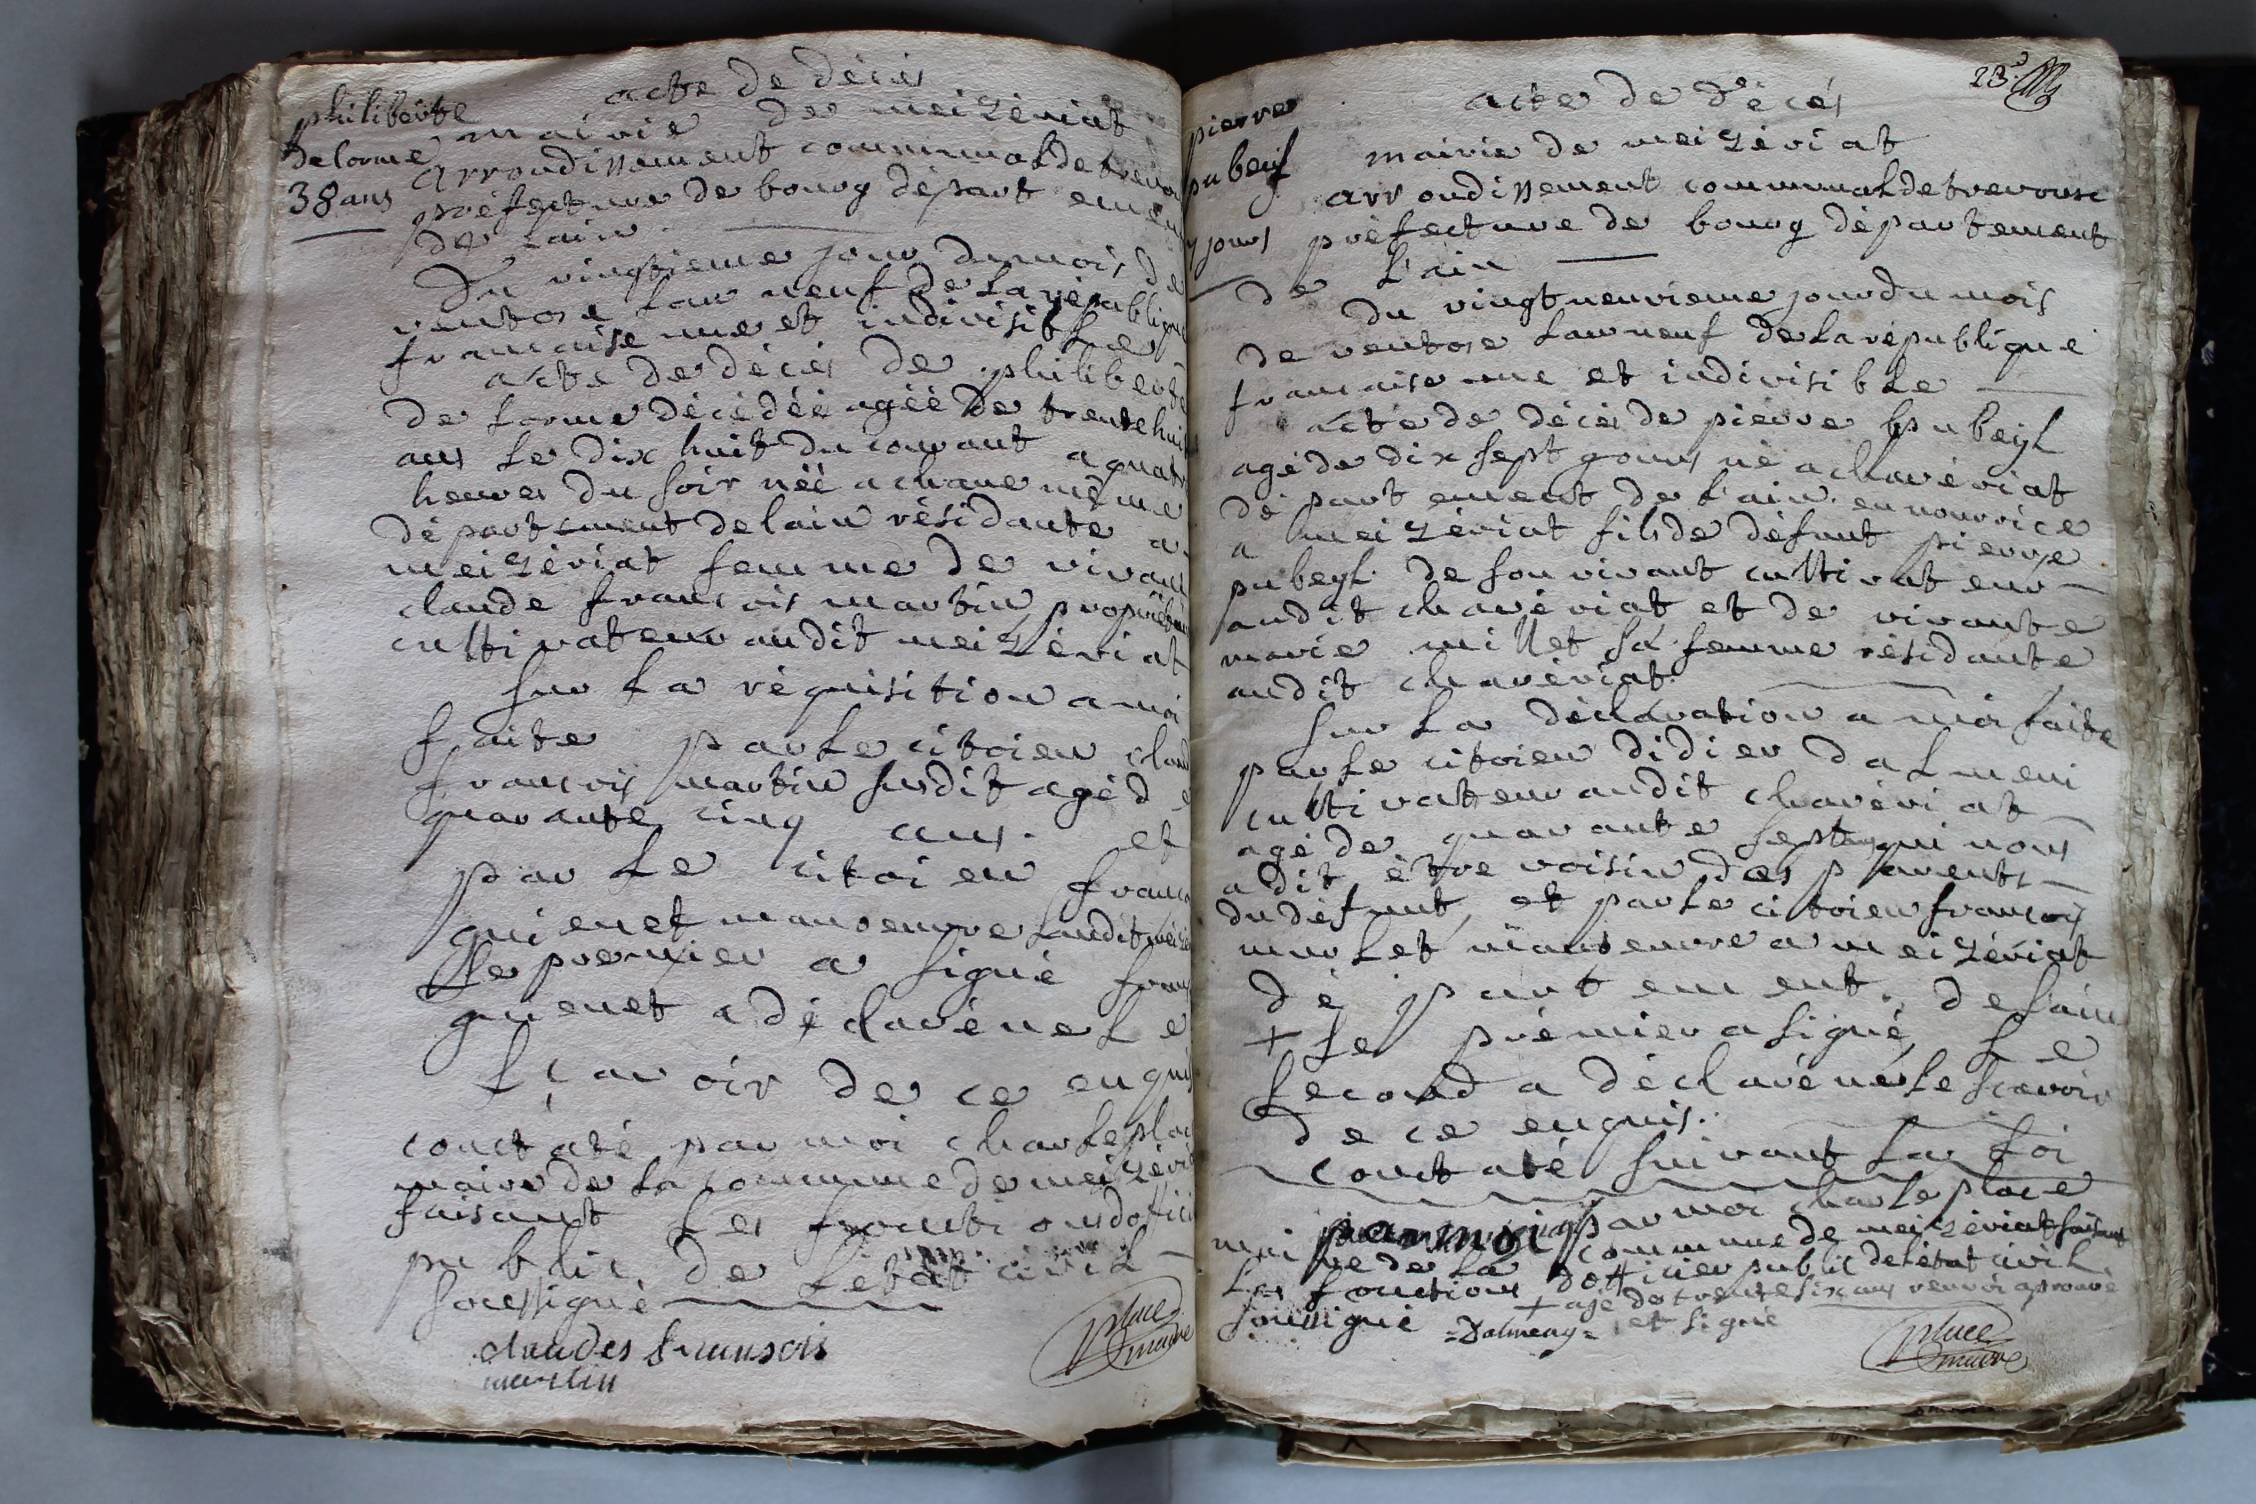 philiberte
delorme
38 ans
acte de décès
mairie de meizériat
arrondissement communal de trevou
préfecture de bourg départ emen
de lain.
Du vingtieme jour du mois de
ventose Lan neuf de La république
francaise une et indivisible
acte de décès de philiberte
de lorme décédéé agéé de trente huit
ans Le dix huit du courant a quatr
heures du soir néé a chane même
département de lain résidante a
meizériat femme de vivant
claude francois martin propriétair
cultivateur audit meizériat
sur La réquisition a moi
faite par Le citoien clau
francois martin susdit agé de
quarante cinq ans. et
par Le citoien franco
guienet manoeuvre audit meizé
Le premier a signé franc
guenet a déclaré ne Le
sçavoir de ce enquis
conctaté par moi charle plac
maire de La commune de meizéri
faisant Les fonctions dofficie
public de Létat civil
soussigné
claudes fransois
martin
place
maire
23e
pierre
pubeyl
7 jours
acte de décés
mairie de meizériat
arrondissement communal de trevoux
préfecture de bourg département
de L'ain
du vingt neuvieme jour du mois
de ventose Lan neuf de La république
francaise une et indivisible
acte de décès de pierre pubeyl
agé de dix sept jours né a chavériat
département de L'ain. en nourrice
a meizériat fils de défunt pierre
pubeyl. de son vivant cultivateur
audit chavériat et de vivante
marie millet sa femme résidante
audit chavériat.
sur La déclaration a moi faite
par Le citoien didier dalmeni
cultivateur audit chavériat
agé de quarante sept ans qui nous
a dit être voisin des parents
du défunt, et par Le citoien francois
murlet manoeuvre a meizériat
département. de lain
+ Le prémier a signé, Le
second a déclaré ne Le scavoir
de ce enquis.
conctaté suivant La Loi
par moi par moi charle place
maire de La commune de meizériat faisant
Les fonctions dofficier public de létat civil
+ agé de trente six ans renvoi aprouvé
soussigné =Dalmeny= et signé
place
maire